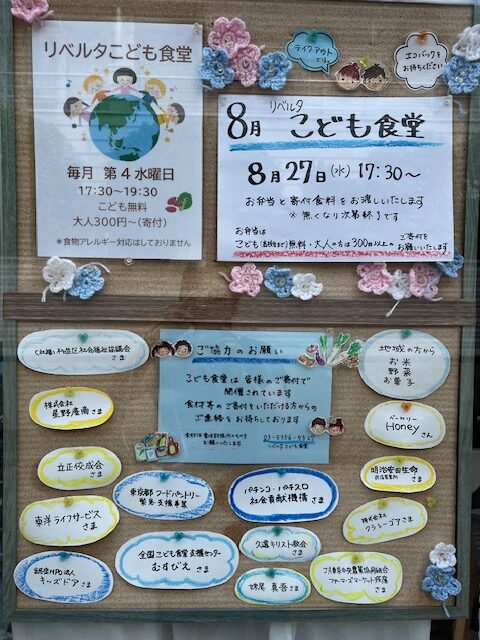 リベルタこども食堂
毎月 第4水曜日
17:30~19:30
こども無料
大人300円~(寄付)
*食物アレルギー対応はしておりません
テイクアウト
です
エコバックを
お持ちください
8月 リベルタ こども食堂
8月27日(水) 17:30~
お弁当と寄付食料をお渡しいたします
※無くなり次第終了です
お弁当は
こども(高校生まで)無料・大人の方は300円以上の ご寄付を
お願いいたします
(社福)杉並区社会福祉協議会
さま
株式会社
星野産商さま
立正佼成会
さま
東洋ライフサービス
さま
認定NPO法人
キッズドアさま
ご協力のお願い
こども食堂は皆様のご寄付で
開催されています
食材等のご寄付をいただける方からの
ご連絡をお待ちしております
お願いいたします
03-5356-5527
リベルタこども食堂
東京都フードパントリー
緊急支援事業
全国こども食堂支援センター
むすびえ さま
パチンコ・パチスロ
社会貢献機構 さま
久遠キリスト教会
さま
さま
地域の方から
お米
野菜
お菓子
ベーカリー
Honey
さん
明治安田生命
さま
株式会社
クラシーブアさま
JA東京中央農業協同組合
ファーマーズマーケット
さま